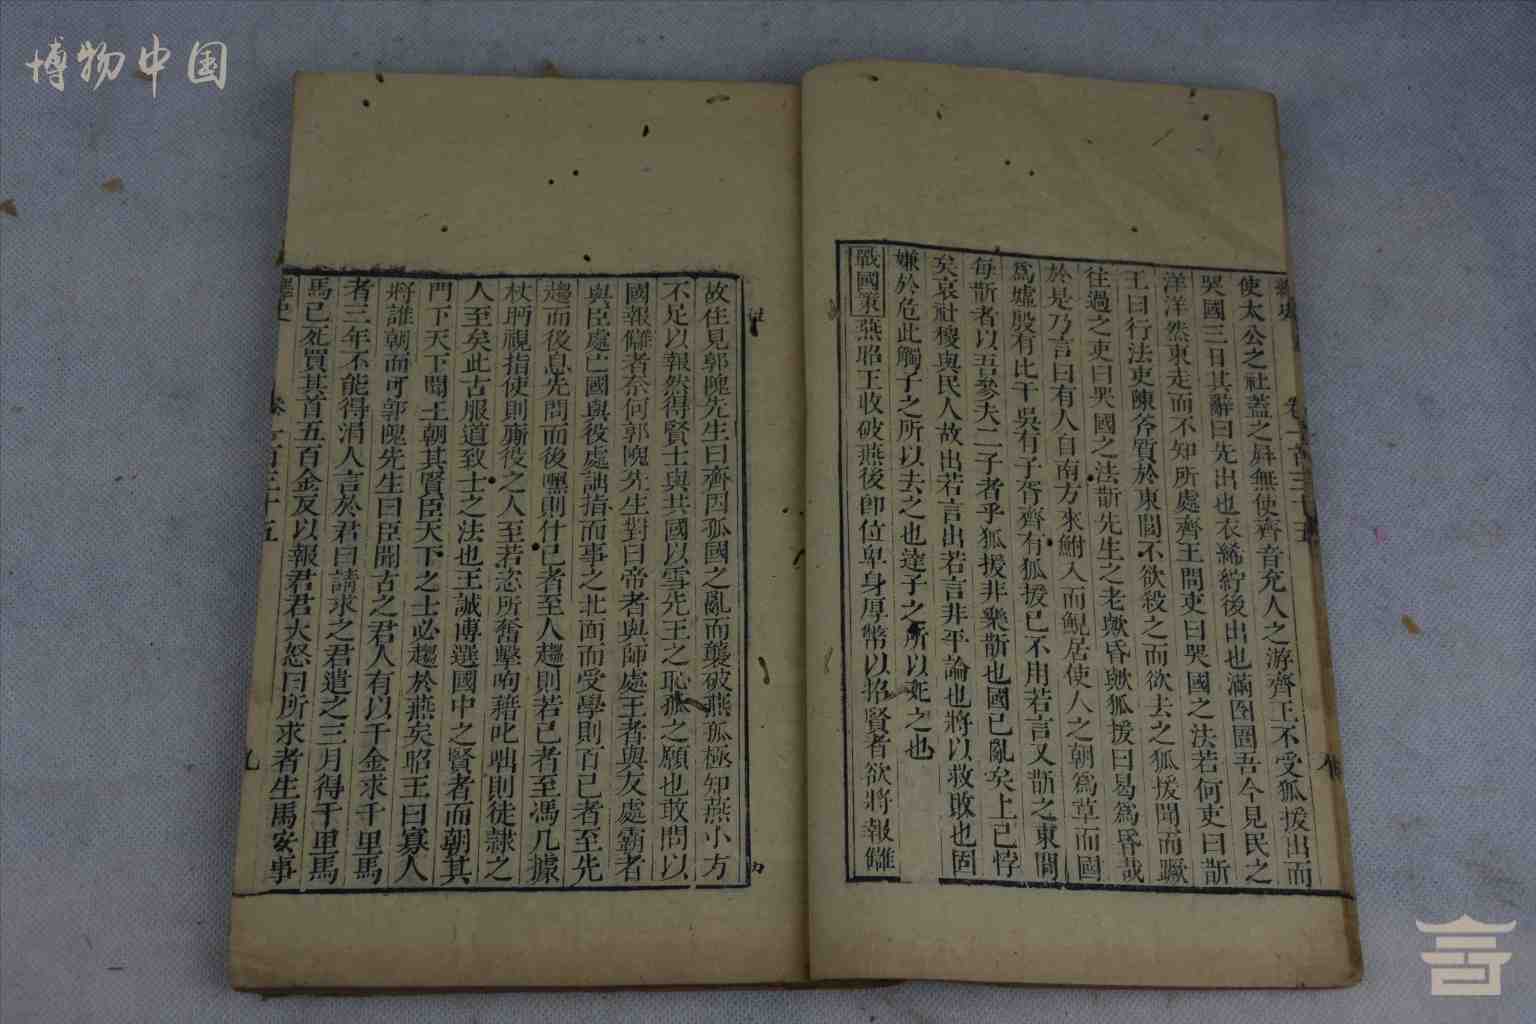 博物中国
使太公之社蓋之屏無使齊音充人之游齊王不受狐援出而
哭國三日其辭曰先出也衣絺紵後出也滿囹圄吾今見民之
洋洋然東走而不知所處齊王問吏曰哭國之法若何吏曰斮
王曰行法吏陳斧質於東閭不欲殺之而欲去之狐援聞而蹶
往過之吏曰哭國之法斮先生之老歟昏歟狐援曰曷爲昏哉
於是乃言曰有人自南方來鮒入而鯢居使人之朝爲草而國
爲墟殷有比干吳有子胥齊有狐援已不用若言又斮之東閭
每斮者以吾參夫二子者乎狐援非樂斮也國已亂矣上已悖
矣哀社稷與民人故出若言出若言非平論也將以救敗也固
嫌於危此觸子之所以去之也達子之所以死之也
戰國策燕昭王收破燕後卽位卑身厚幣以招賢者欲將報讎
故往見郭隗先生曰齊因孤國之亂而襲破燕孤極知燕小力
不足以報然得賢士與共國以雪先王之恥孤之願也敢問以
國報讎者奈何郭隗先生對曰帝者與師處王者與友處霸者
與臣處亡國與役處詘指而事之北面而受學則百己者至先
趨而後息先問而後嘿則什己者至人趨則若己者至馮几據
杖眄視指使則廝役之人至若恣所奮擊呴藉叱咄則徒隷之
人至矣此古服道致士之法也王誠博選國中之賢者而朝其
門下天下聞王朝其賢臣天下之士必趨於燕矣昭王曰寡人
將誰朝而可郭隗先生曰臣聞古之君人有以千金求千里馬
者三年不能得涓人言於君曰請求之君遣之三月得千里馬
馬已死買其首五百金反以報君君大怒曰所求者生馬安事
繹史 卷一百三十五 九